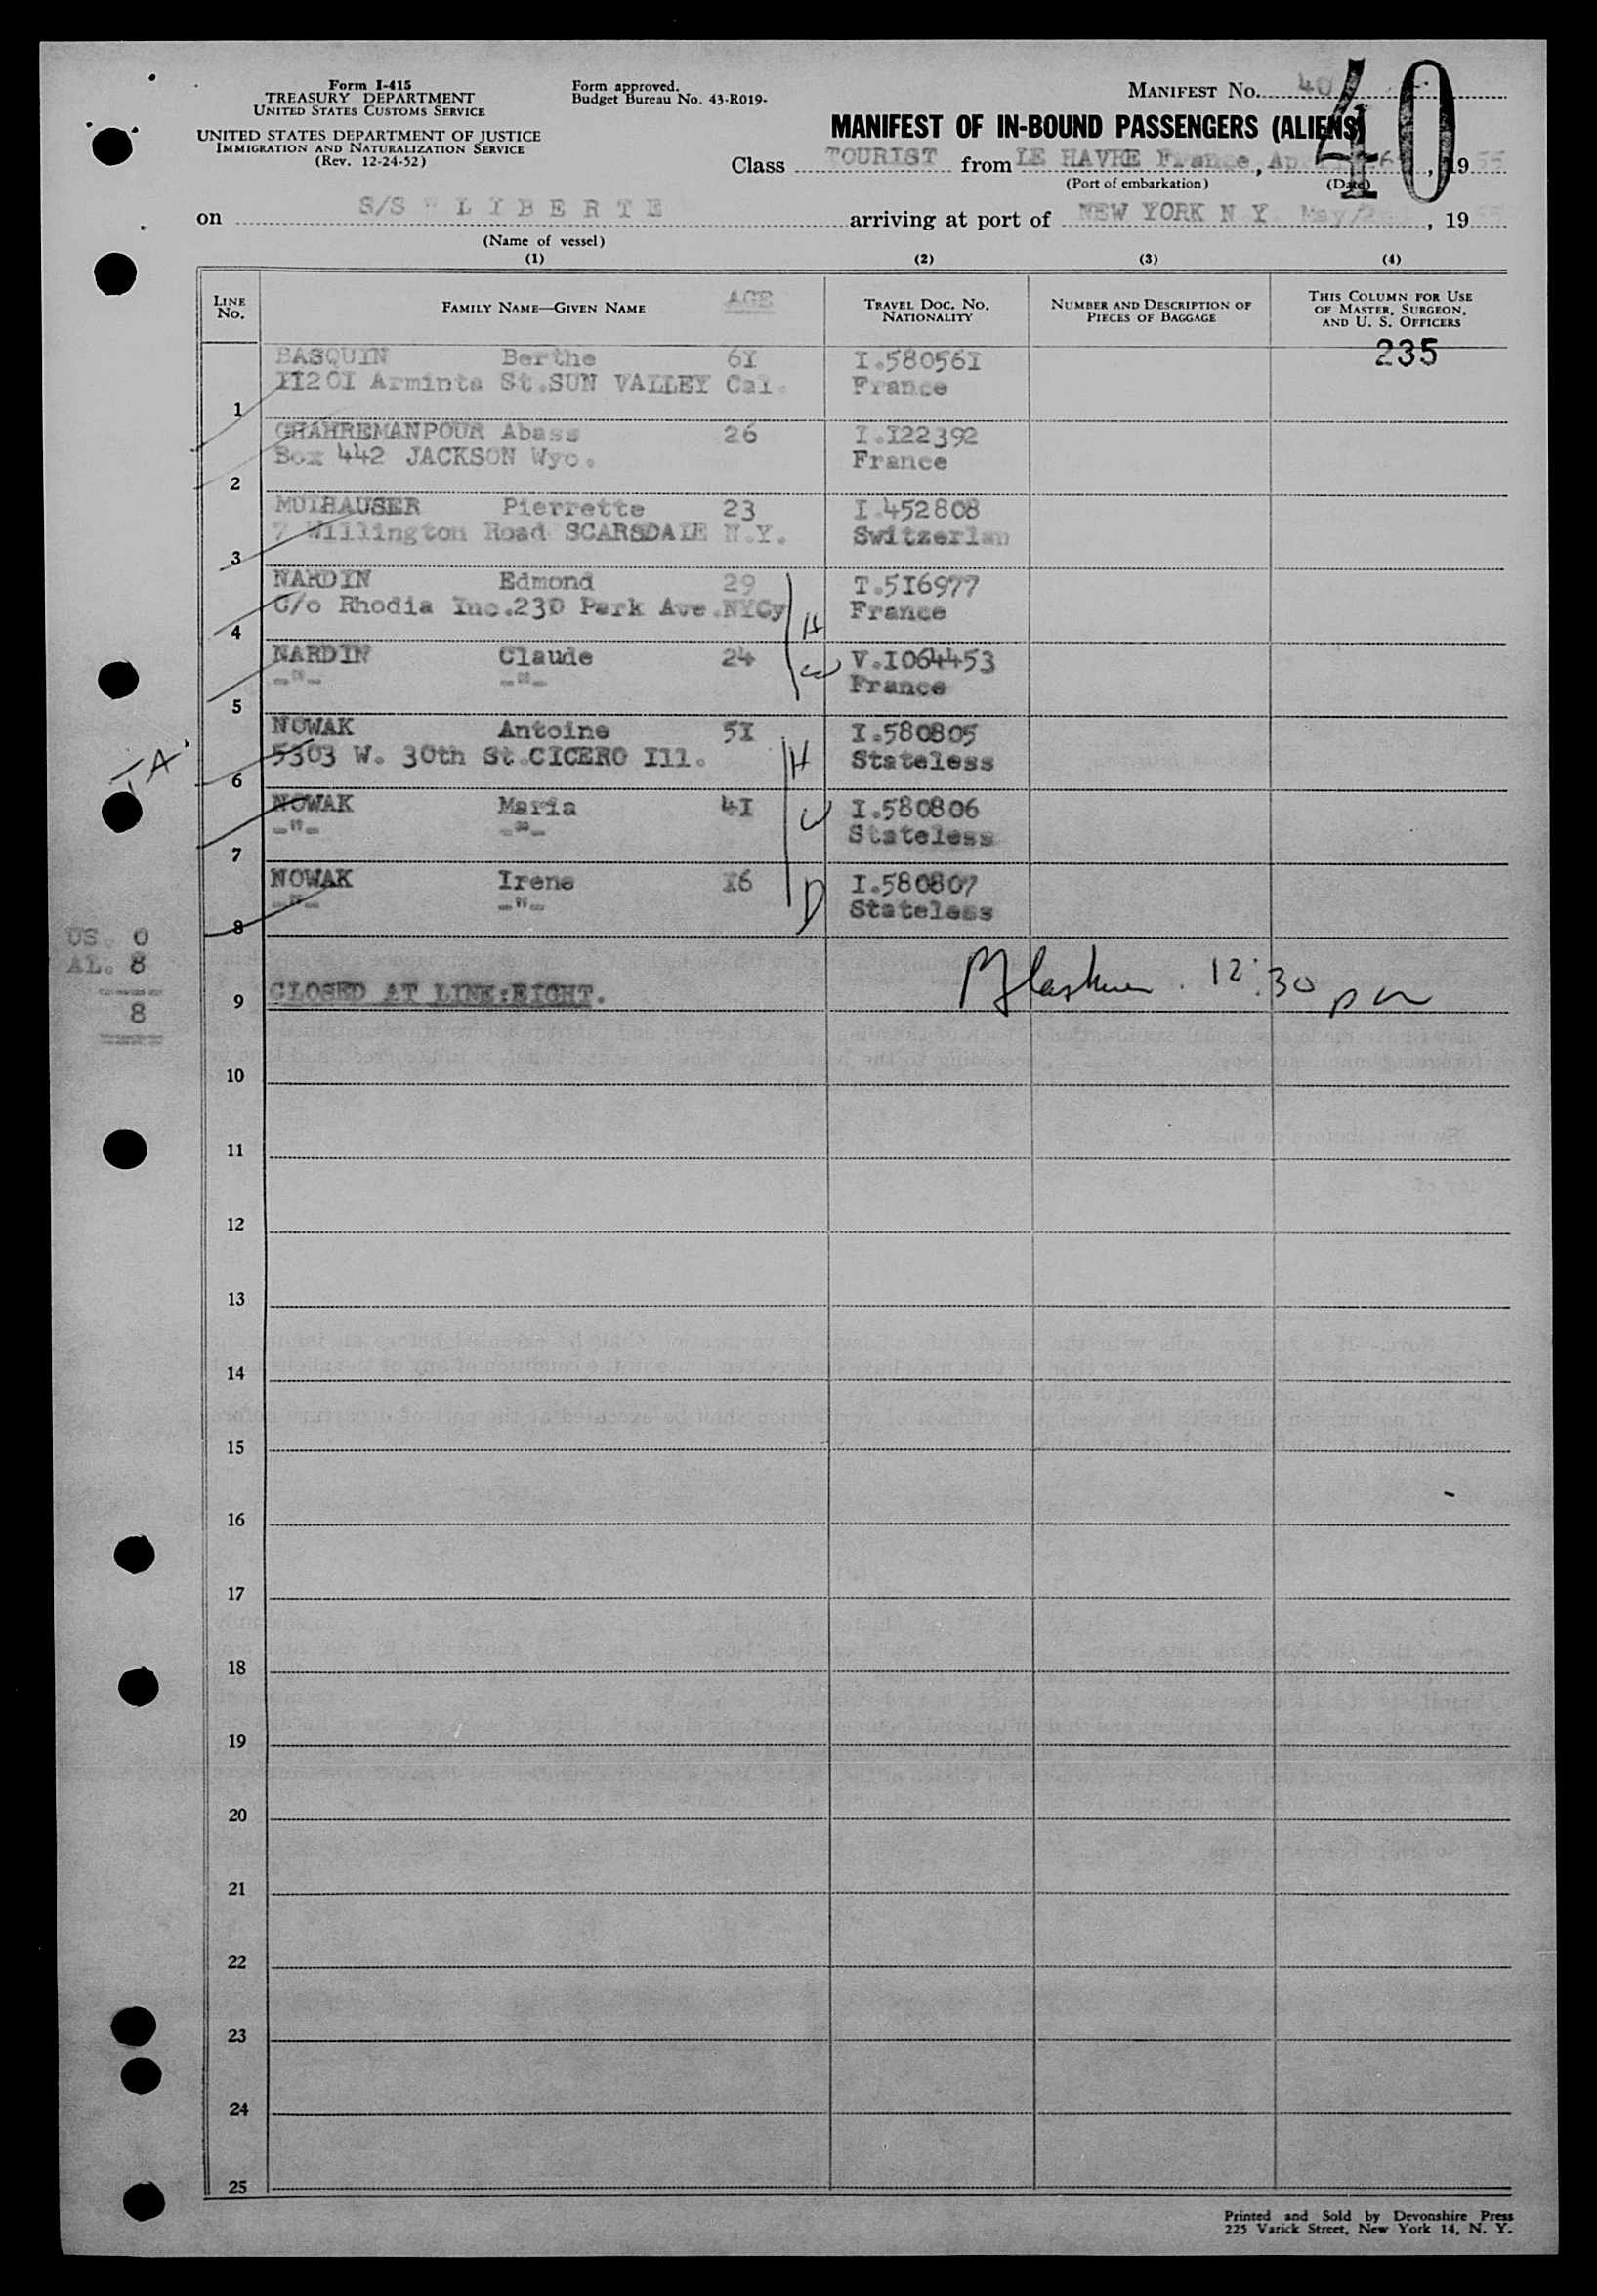 Form I-415
TREASURY DEPARTMENT
UNITED STATES CUSTOMS SERVICE
UNITED STATES DEPARTMENT OF JUSTICE
IMMIGRATION AND NATURALIZATION SERVICE
(Rev. 12-24-52)
Form approved.
Budget Bureau No. 43-R019-
MANIFEST NO. 40
40
MANIFEST OF IN-BOUND PASSENGERS (ALIENS)
Class TOURIST from LE HAVRE France, , 1955
(Port of embarkation) (Date)
on S/S " LIBERTE arriving at port of NEW YORK N Y May/ , 1955
(Name of vessel)
(1) (2) (3) (4)
LINE NO. FAMILY NAME—GIVEN NAME AGE TRAVEL DOC. NO. NATIONALITY NUMBER AND DESCRIPTION OF PIECES OF BAGGAGE THIS COLUMN FOR USE OF MASTER, SURGEON, AND U. S. OFFICERS
235
BASQUIN Berthe 6I I.58056I
II20I Arminta St.SUN VALLEY Cal. France
1
GHAHREMANPOUR Abass 26 I.I22392
Box 442 JACKSON Wyo. France
2
MUIHAUSER Pierrette 23 I.452808
7 Willington Road SCARSDALE N.Y. Switzerlan
3
NARDIN Edmond 29 T.5I6977
C/o Rhodia Inc.230 Park Ave.NYCy H France
4
NARDIN Claude 24 V.I064453
-"- -"- W France
5
NOWAK Antoine 5I I.580805
5303 W. 30th St.CICERO Ill. H Stateless
6
NOWAK Maria 4I I.580806
-"- -"- W Stateless
7
NOWAK Irene I6 I.580807
-"- -"- D Stateless
8
US. 0
AL. 8
8
9 CLOSED AT LINE:EIGHT.
12:30 pm
10
11
12
13
14
15
16
17
18
19
20
21
22
23
24
25
Printed and Sold by Devonshire Press
225 Varick Street, New York 14, N. Y.